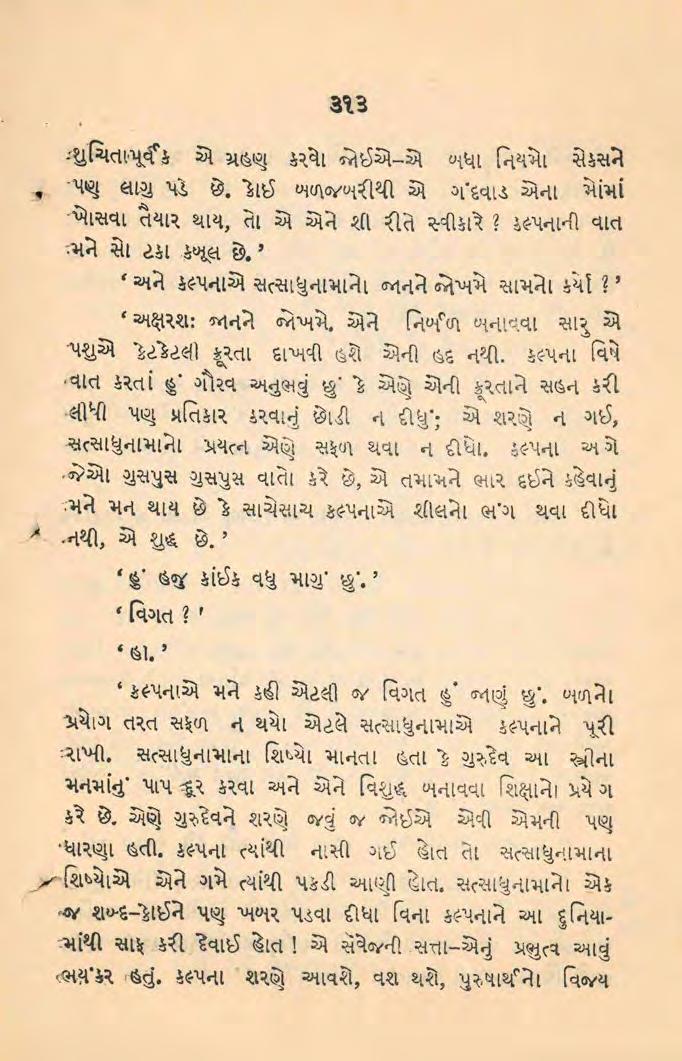 ૩૧૩
શુચિતાપૂર્વક એ ગ્રહણ કરવો જોઈએ–એ બધા નિયમો સેક્સને
પણ લાગુ પડે છે. કોઈ બળજબરીથી એ ગંદવાડ એના મોંમાં
ખોસવા તૈયાર થાય, તો એ એને શી રીતે સ્વીકારે ? કલ્પનાની વાત
મને સો ટકા કબૂલ છે.’
‘ અને કલ્પનાએ સત્સાધુનામાનો જાનને જોખમે સામનો કર્યો ?’
‘ અક્ષરશઃ જાનને જોખમે. એને નિર્બળ બનાવવા સારુ એ
પશુએ કેટકેટલી ક્રૂરતા દાખવી હશે એની હદ નથી. કલ્પના વિષે
વાત કરતાં હું ગૌરવ અનુભવું છું કે એણે એની ક્રૂરતાને સહન કરી
લીધી પણ પ્રતિકાર કરવાનું છોડી ન દીધું; એ શરણે ન ગઈ,
સત્સાધુનામાનો પ્રયત્ન એણે સફળ થવા ન દીધો. કલ્પના અગે
જેઓ ગુસપુસ ગુસપુસ વાતો કરે છે, એ તમામને ભાર દઈને કહેવાનું
મને મન થાય છે કે સાચેસાચ કલ્પનાએ શીલનો ભંગ થવા દીધો
નથી, એ શુદ્ધ છે.’
‘ હું હજુ કાંઈક વધુ માગું છું.’
‘ વિગત ? ’
‘ હા.’
‘ કલ્પનાએ મને કહી એટલી જ વિગત હું જાણું છું. બળનો
પ્રયોગ તરત સફળ ન થયો એટલે સત્સાધુનામાએ કલ્પનાને પૂરી
રાખી. સત્સાધુનામાના શિષ્યો માનતા હતા કે ગુરુદેવ આ સ્ત્રીના
મનમાંનું પાપ દૂર કરવા અને એને વિશુદ્ધ બનાવવા શિક્ષાનો પ્રયોગ
કરે છે. એણે ગુરુદેવને શરણે જવું જ જોઈએ એવી એમની પણ
ધારણા હતી. કલ્પના ત્યાંથી નાસી ગઈ હોત તો સત્સાધુનામાના
શિષ્યોએ એને ગમે ત્યાંથી પકડી આણી હોત. સત્સાધુનામાનો એક
જ શબ્દ–કોઈને પણ ખબર પડવા દીધા વિના કલ્પનાને આ દુનિયા-
માંથી સાફ કરી દેવાઈ હોત ! એ સેવેજની સત્તા–એનું પ્રભુત્વ આવું
ભયંકર હતું. કલ્પના શરણે આવશે, વશ થશે, પુરુષાર્થનો વિજય